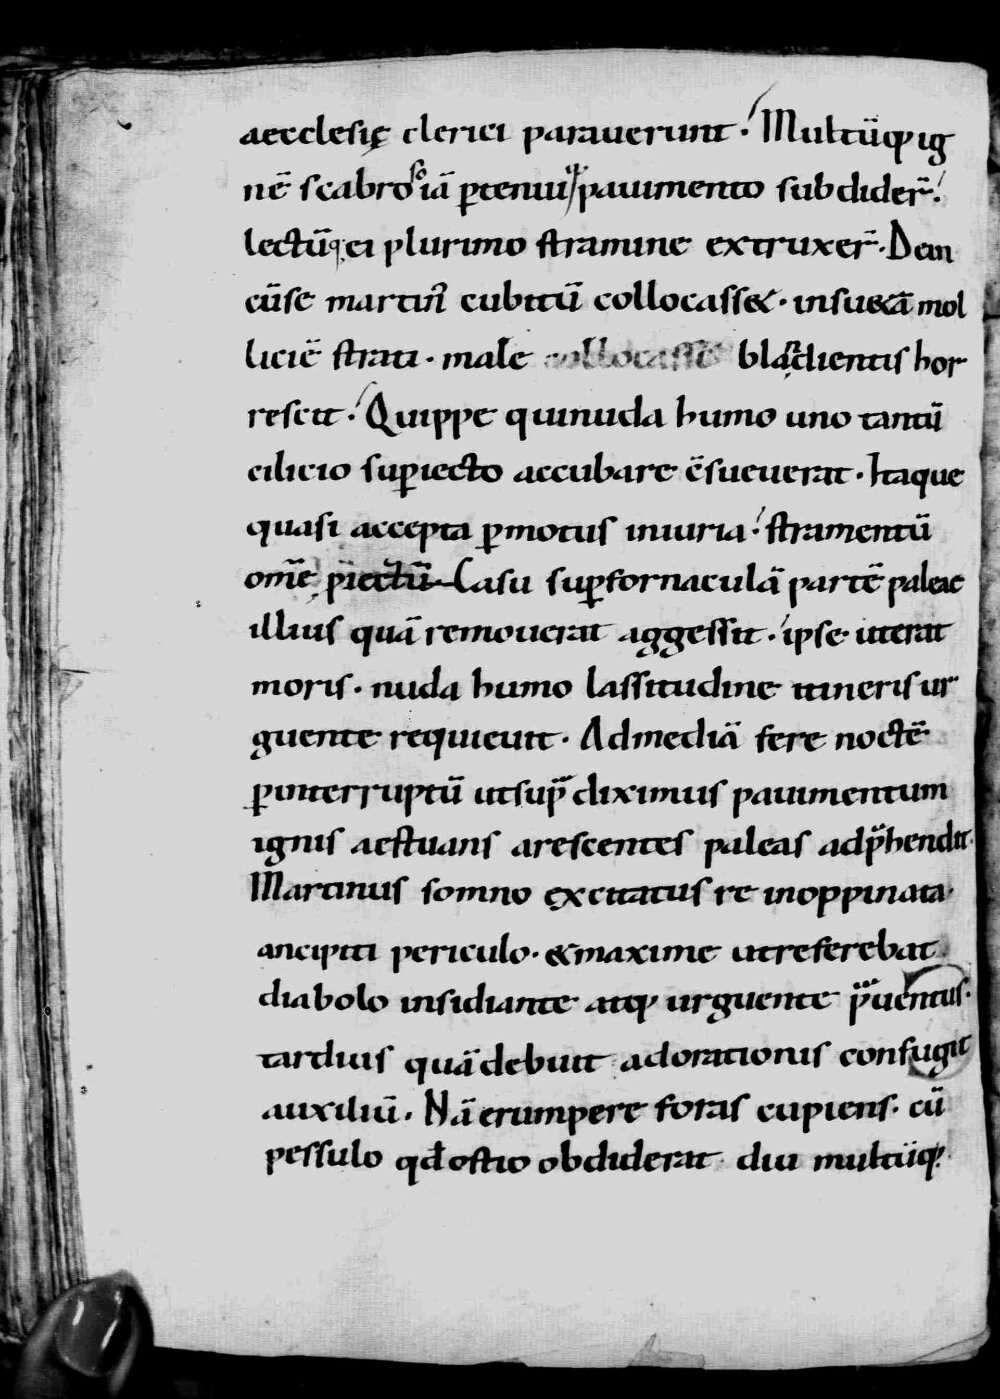 aecclesię clerici parauerunt. Multūq; ig
nē scabroso iā ꝑtenuiq; pauimento subdider̄.
lectūq; ei plurimo stramine extruxer̄. Dein
cū se martin᷒ cubitū collocasset. insuetā mol
liciē strati. male collocasse blandientis hor
rescit. Quippe qui nuda humo uno tantū
cilicio suꝑiecto accubare c̄sueuerat. Itaque
quasi accepta ꝑmotus iniuria. stramentū
om̄e ꝓiectū Casu suꝑ fornaculā partē paleae
illius quā remouerat aggessit. ipse ut erat
moris. nuda humo lassitudine itineris ur
guente requieuit. Ad mediā fere noctē
ꝑ interruptū ut sup̄ diximus pauimentum
ignis aestuans arescentes paleas adp̄hendit.
Martinus somno excitatus re inoppinata.
ancipiti periculo. & maxime ut referebat
diabolo insidiante atq; urguente p̄uentus.
tardius quā debuit ad orationis confugit
auxiliū. Nā erumpere foras cupiens. cū
pessulo qđ ostio obdiderat diu multūq;